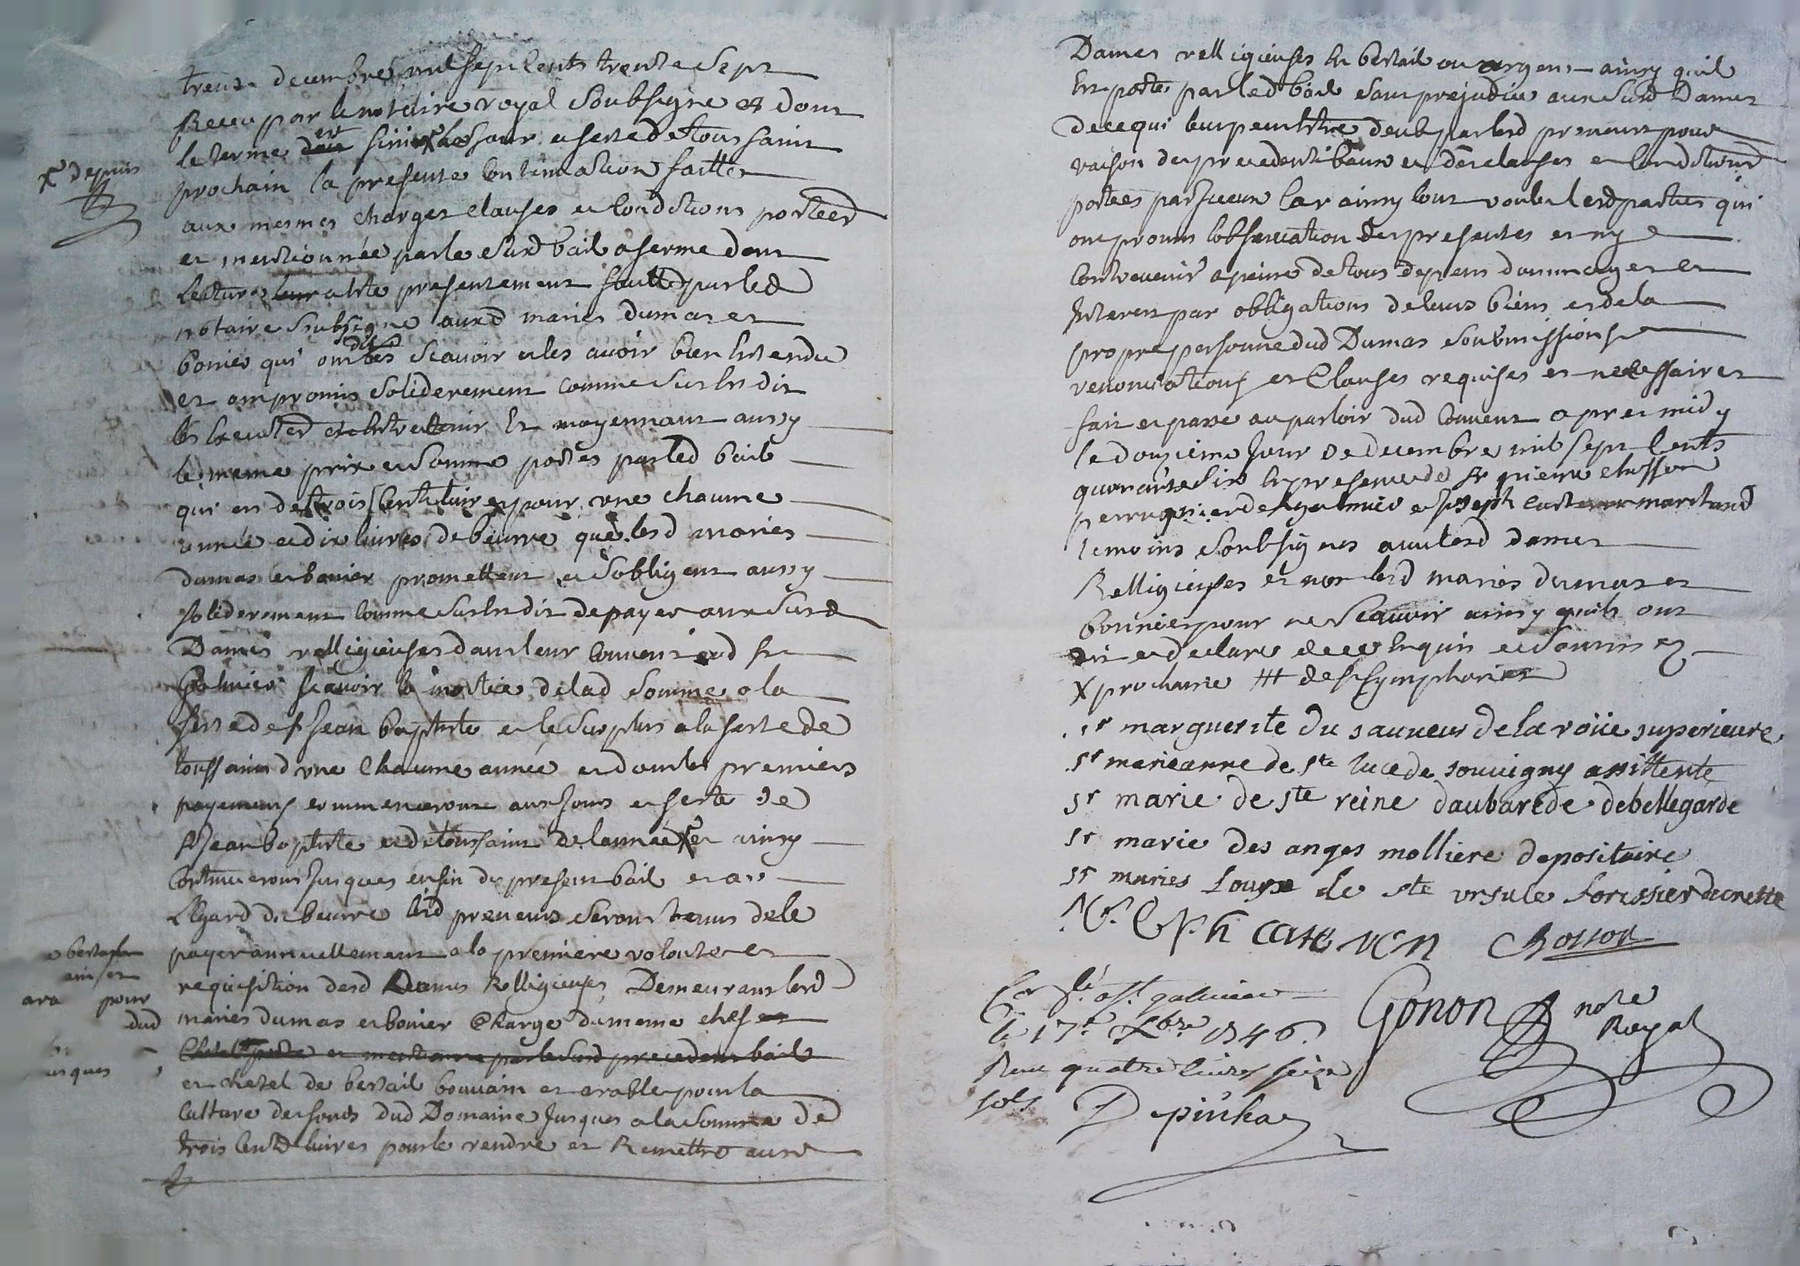 treize decembre mil sept cents trente sept
Receu par le notaire royal soubsigné et dont
le terme est finir au jour et feste de toussaint
x depuis
prochain la presente continuation faitte
aux mesmes charges clauses et conditions porteed
et mentionnée par le susd bail a ferme dont
lecture a este presentement faitte par led
notaire soubsigné auxd mariés dumas et
bonier qui ont dit scavoir et les avoir bien entendu
et ont promis soliderement comme sus est dit
les executer et moyennant aussy
le meme prix et somme portés par led bail
qui est de trois cent livres pour une chacune
année et dix livres de beurre que lesd mariés
dumas et bonier promettent et s'obligent aussy
soliderement comme sus est dit de payer aux susd
Dames relligieuses dans leur couvent dud st
Galmier scavoir la moitié de lad somme a la
feste de st jean baptiste et le surplus a la feste de
toussaint d'une chacune année et dont les premiers
payements commenceront aux jours et feste de
st Jean baptiste et de toussaint de l'année x et ainsy
continueront jusques en fin du present bail et a
l'egard du beurre lesd preneurs seront tenus de le
payer annuellement a la premiere volonté et
requisition desd Dames Relligieuses, Demeurant lesd
mariés dumas et bonier chargé du meme chef
et mentionné par le susd precedent bail
et chetel de bestail bouvain et arable pour la
culture des fonds dud Domaine jusques a la somme de
trois cent livres pour le rendre et Remettre aux
pour
dud
jusques
Dames relligieuses en bestail ou argent ainsy quil
est porté par led bail sans prejudice aux susd Dames
de ce qui leur peut estre deub par lesd preneurs pour
raison des precedents baux et des clauses et conditions
portées par iceux car ainsy l'ont voulu lesd parties qui
ont promis l'observation des presentes et n'y
contrevenir a peine de tous depens dommages et
interest par obligations de leurs biens et de la
propre personne dud Dumas soubmissions
renonciations et clauses requises et necessaires
fait et passé au parloir dud couvent apres midy
le douzieme jour de decembre mil sept cents
quarante six en presence de sr pierre chosson
perruquier de st galmier et joseph marchand
temoins soubsignés avec lesd dames
Relligieuses et non lesd mariés dumas et
bonnier pour ne scavoir ainsy quils ont
dit et declaré de ce enquis et sommés
x prochaine de st symphorien
sr marguerite du sauveur de la roüe superieure
sr marieanne de ste luce de souvigny assistente
sr marie de ste reine daubarede de bellegarde
sr marie des anges molliere depositaire
sr maries Louyse de ste ursule
Chosson
Gonon
nore
Royal
le 17e Xbre 1746
Receu quatre livres seize
sols
Depinhac